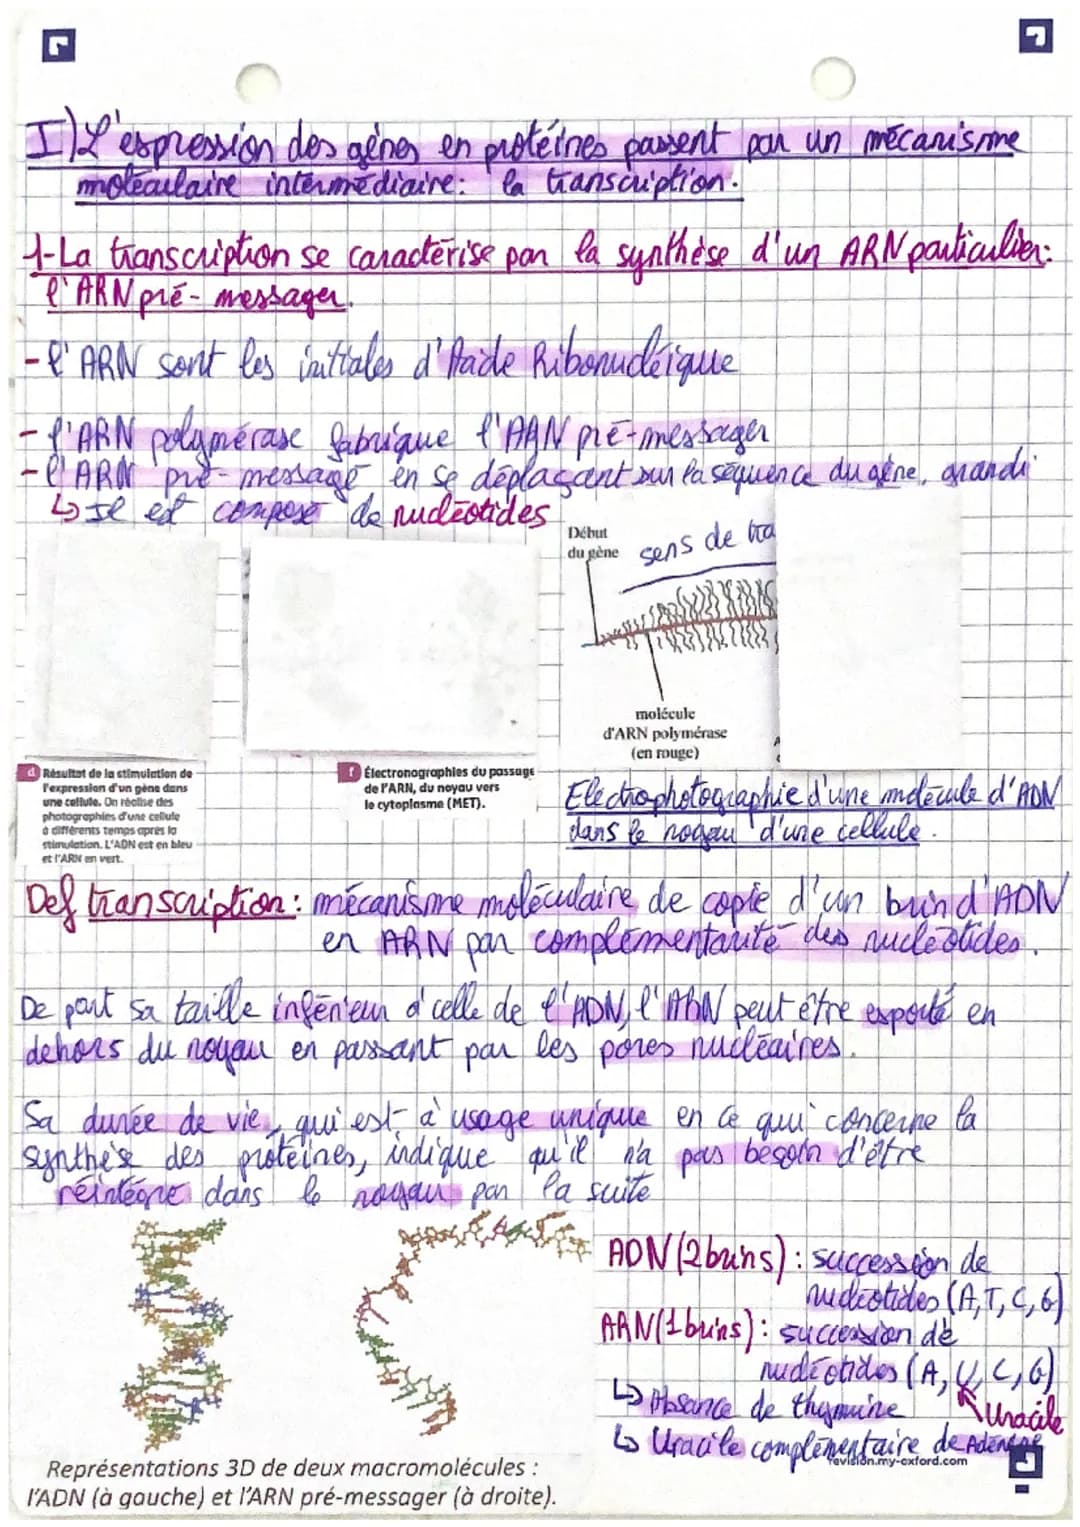 I) L'expression des gènes en protéines passent par un mécanisme
moléculaire intermédiaire: la transcription.
1-La transcription se caractérise par la synthèse d'un ARN particulier:
l'ARN pré-messager.
- l'ARN sont les initiales d'Acide Ribonucléique
- l'ARN polymérase fabrique l'ARN pré-messager
- l'ARN pré-messagé en se déplaçant sur la séquence du gène, grandi
↳ Il est composé de nucléotides
Début
du gène
sens de tra
molécule
d'ARN polymérase
(en rouge)
A
d Résultat de la stimulation de
l'expression d'un gène dans
une cellule. On réalise des
photographies d'une cellule
à différents temps après la
stimulation. L'ADN est en bleu
et l'ARN en vert.
f Électronographies du passage
de l'ARN, du noyau vers
le cytoplasme (MET).
Electrophotographie d'une molécule d'ADN
dans le noyau d'une cellule.
Def transcription: mécanisme moléculaire de copie d'un brin d'ADN
en ARN par complémentarité des nucléotides.
De part sa taille inférieur à celle de l'ADN, l'ARN peut être exporté en
dehors du noyau en passant par les pores nucléaires.
Sa durée de vie, qui est à usage unique en ce qui concerne la
synthèse des protéines, indique qu'il n'a pas besoin d'être
réintégré dans le noyau par la suite
ADN (2 brins): succession de
nucléotides (A,T,C,G)
ARN (1 brins): succession de
nucléotides (A,U,C,G)
↳ Absence de thymine
Uracile
↳ Uracile complémentaire de Adénine
revision.my-oxford.com
Représentations 3D de deux macromolécules :
l'ADN (à gauche) et l'ARN pré-messager (à droite).